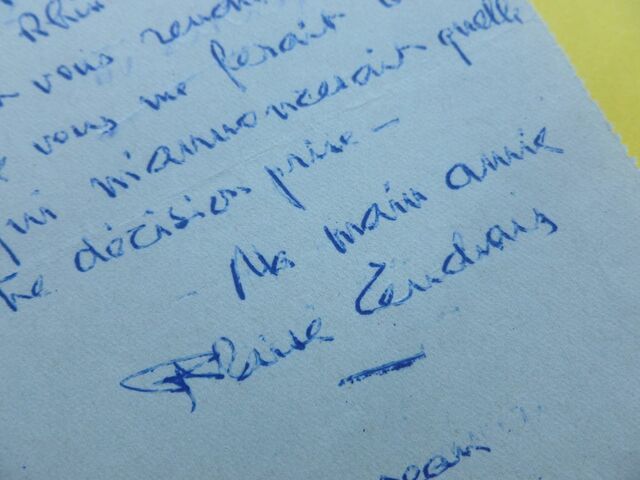 Rhin
vous rendr
vous me ferait
qui m'annoncerait quelle
décision prise —
Ma main amie
Blaise Cendrars